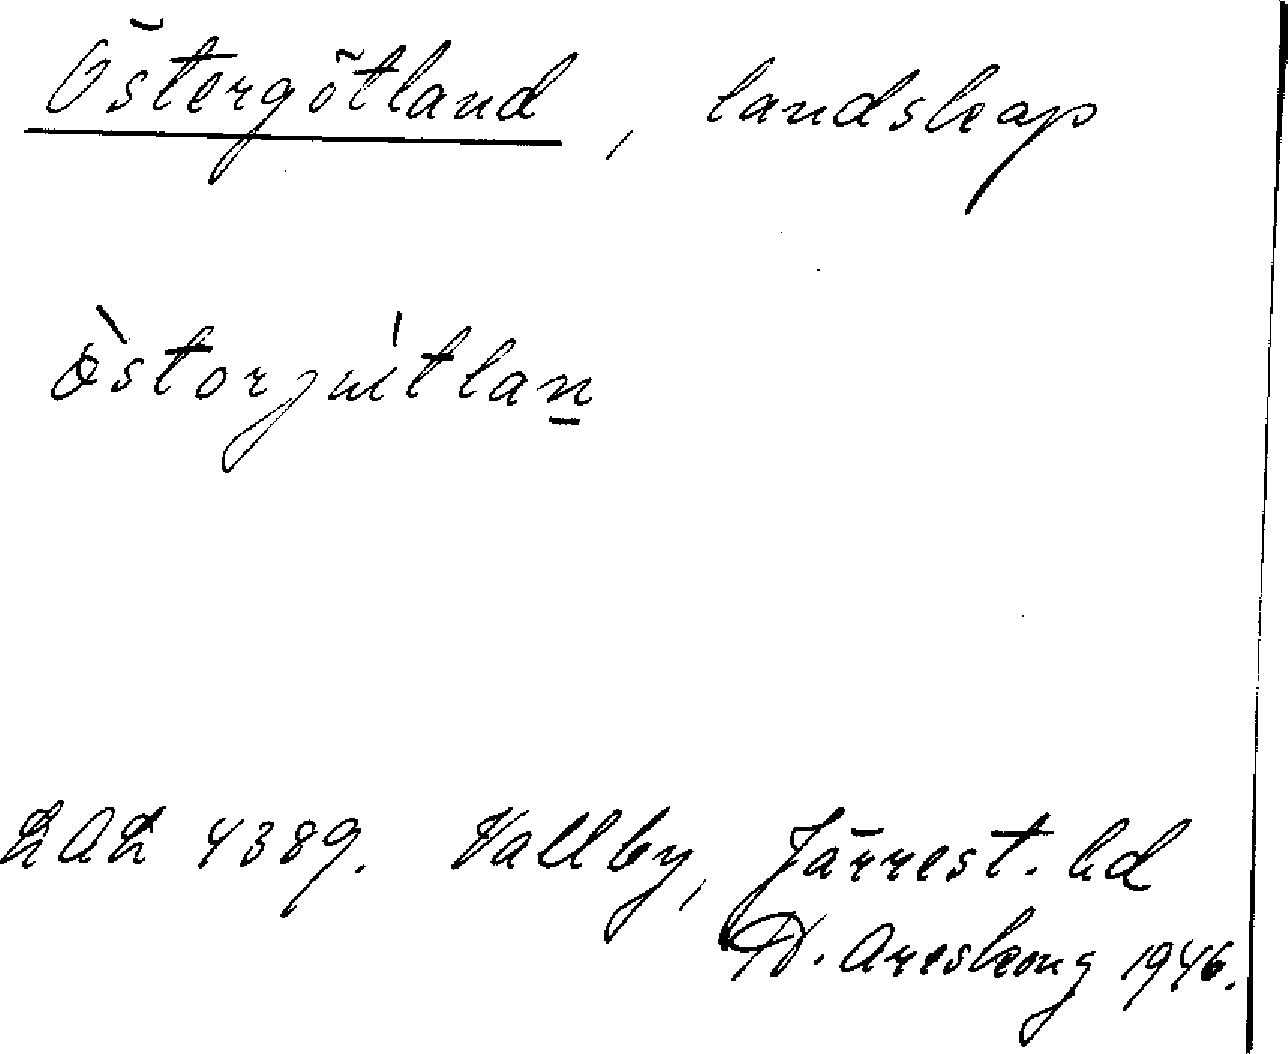 Östergötland, landskap
òstorjuítlan̲
LAL 4389. Vallby, Järrest. hd
D. Areskoug 1946.